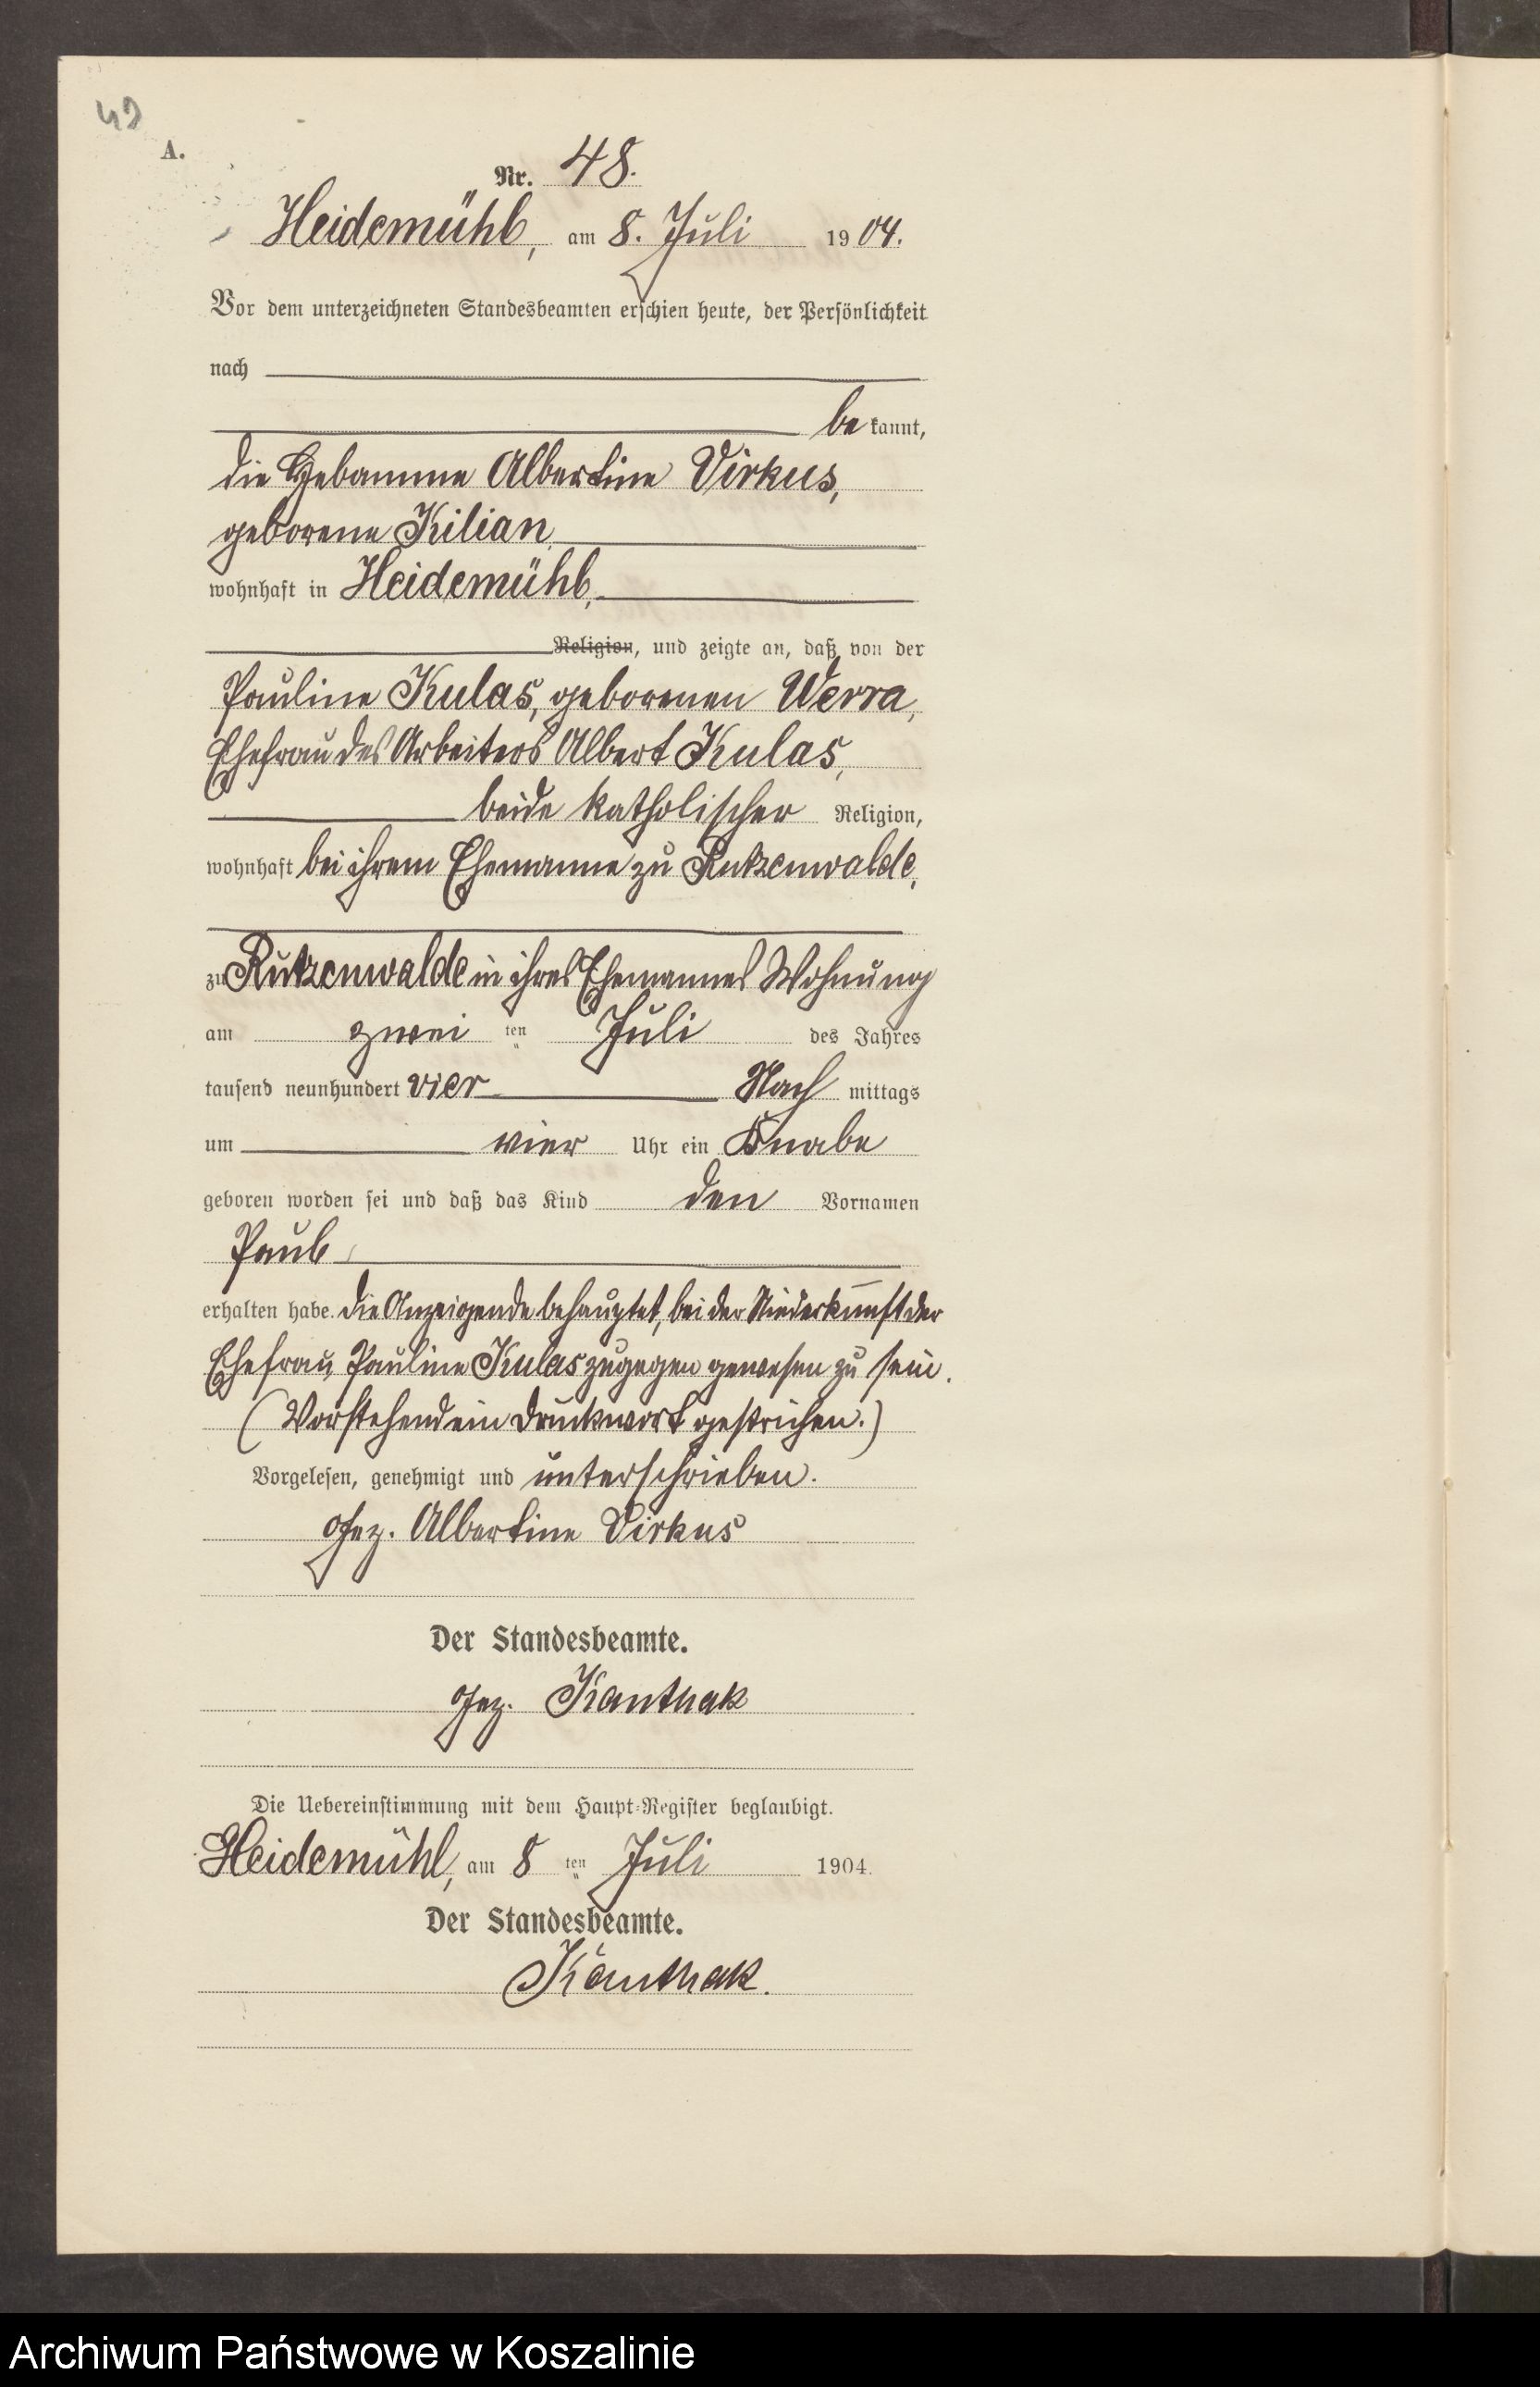 49
A.
Nr. 48.
Heidemühl, am 8. Juli 1904.
Vor dem unterzeichneten Standesbeamten erschien heute, der Persönlichkeit
nach
bekannt,
die Hebamme Albertine Virkus,
geborene Kilian
wohnhaft in Heidemühl,
Religion, und zeigte an, daß von der
Pauline Kulas, geborenen Werra,
Ehefrau des Arbeiters Albert Kulas,
beide katholischer Religion,
wohnhaft bei ihrem Ehemanne zu Rutzenwalde,
zu Rutzenwalde in ihres Ehemannes Wohnung
am zwei ten Juli des Jahres
tausend neunhundert vier Nachmittags
um vier Uhr ein Knabe
geboren worden sei und daß das Kind den Vornamen
Paul
erhalten habe. Die Anzeigende behauptet, bei der Niederkunft der
Ehefrau Pauline Kulas zugegen gewesen zu sein.
(Vorstehend ein Druckwort gestrichen.)
Vorgelesen, genehmigt und unterschrieben.
gez. Albertine Virkus
Der Standesbeamte.
gez. Kanthak
Die Uebereinstimmung mit dem Haupt-Register beglaubigt.
Heidemühl, am 8 ten Juli 1904.
Der Standesbeamte.
Kanthak.
Archiwum Państwowe w Koszalinie